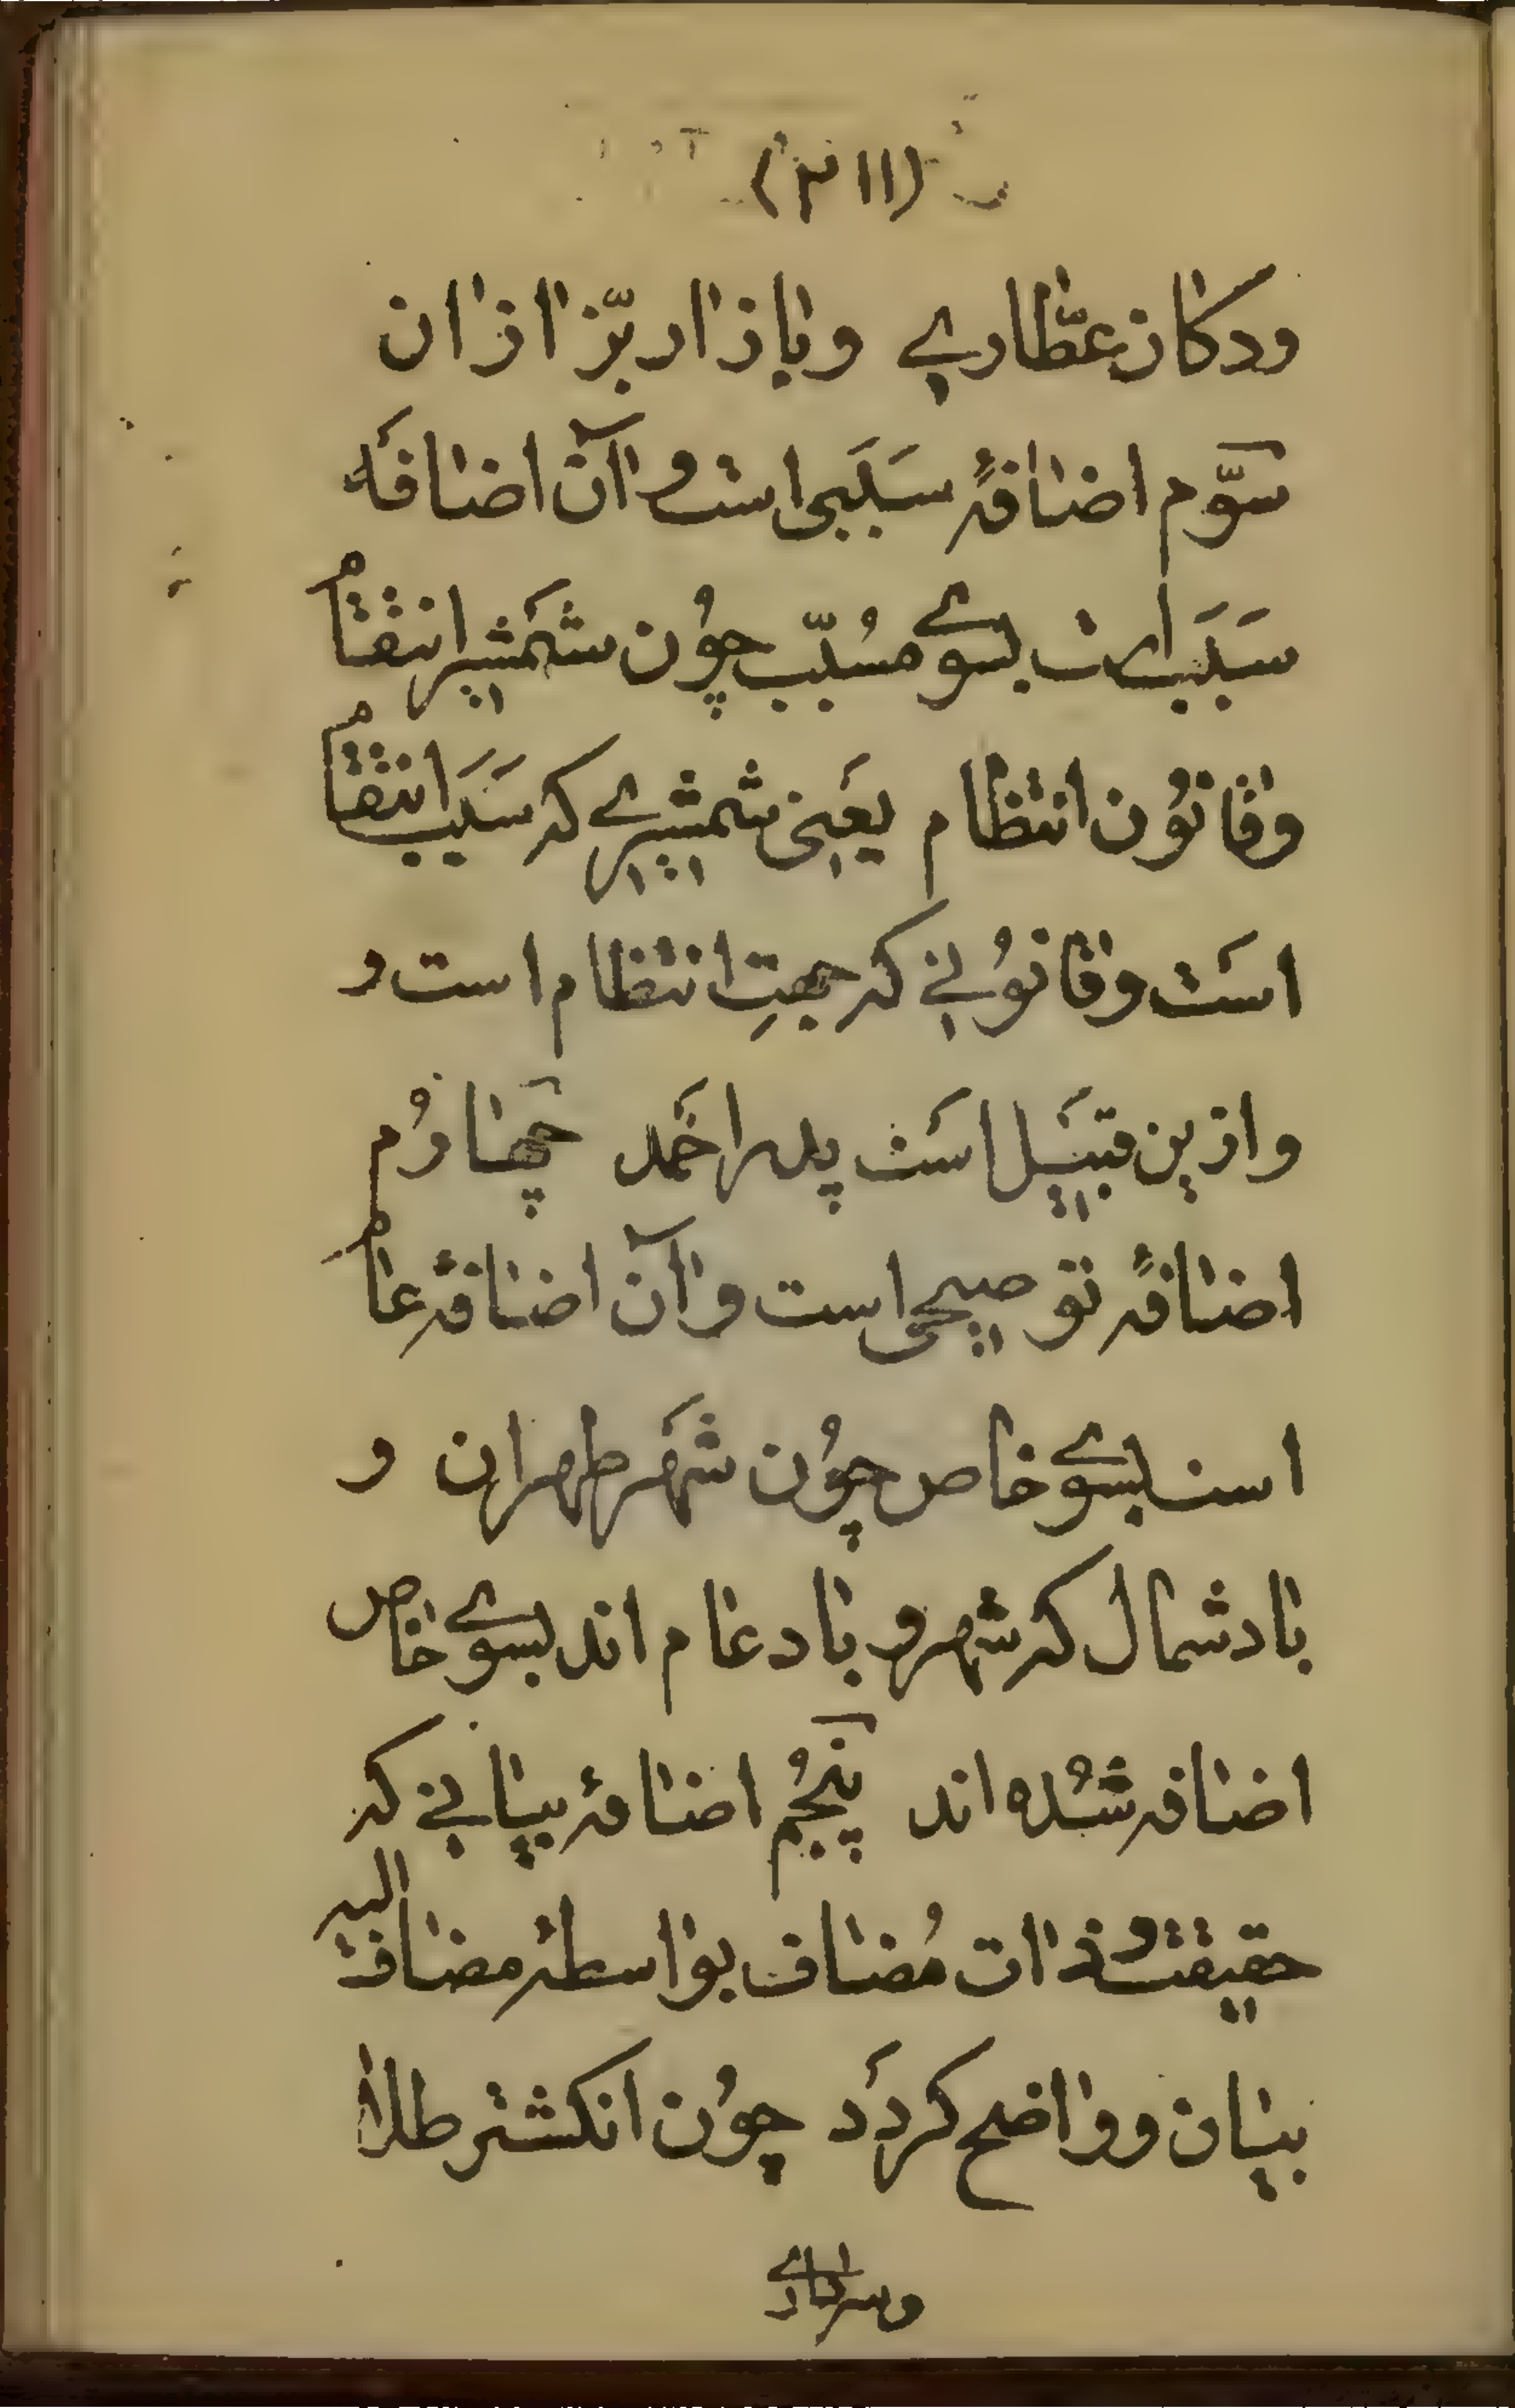 (۱۱۳)
ودکان عطّاری وبازار بزّازان
سوّم اضافهٔ سَبَبی است و آن اضافهٔ
سَبَب است بسوی مُسبّب چوُن شَمشیر انتقام
وقانوُن انتظام یعَنی شمشیری که سَبَب انتقام
است وقانوُنی که جهتِ انتظام است و
وازین قبیَل اسَت پدر احَمد چَهارُم
اضافهٔ توضیحی است وآن اضافهٔ عام
است بسوی خاص چوُن شهَر طهران و
باد شمال که شهر و باد عام اند بسوی خاص
اضافه شُده اند پَنجُم اضافهٔ بیانی که
حقیقت و ذات مُضاف بواسطهٔ مضاف الیه
بیان وواضح کردَد چوُن انکشتر طلا